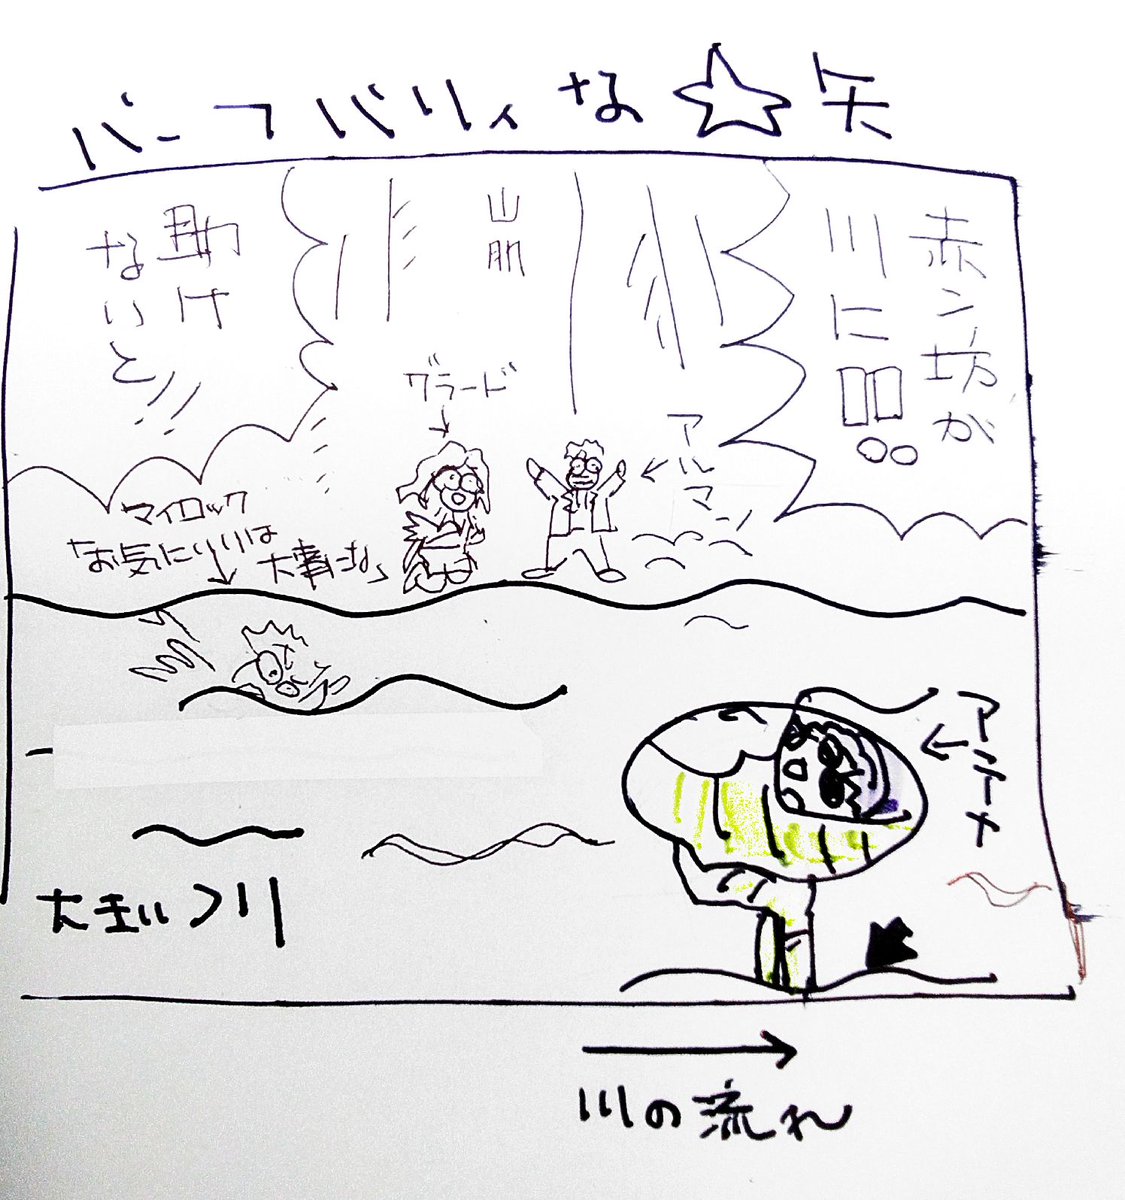 バーフバリィな☆矢
赤ン坊が
川に!!
山肌
助け
ないと
グラード
アルマン
マイロック
「お気にいりは
大事にな」
アテナ
川の流れ